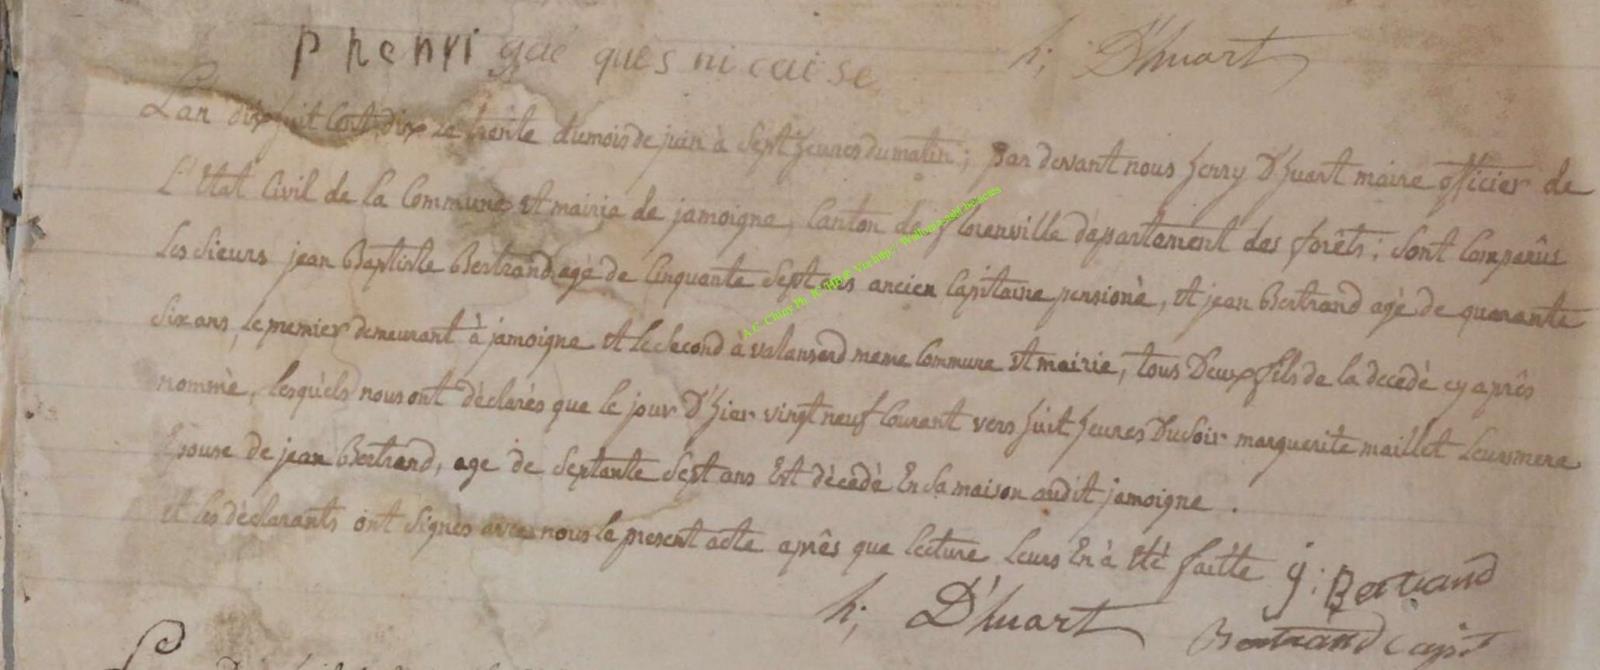 p henri gaé ques nicaise h; D'huart
L'an dix huit cent dix le trente du mois de juin à Sept heures du matin; par devant nous henry D'huart maire officier de
L'Etat Civil de la Commune et mairie de jamoigne, Canton de florenville département des forêts; Sont Comparûs
Les Sieurs jean Baptiste Bertrand agé de Cinquante Sept ans ancien Capitaine pensioné, et jean Bertrand agé de quarante
Six ans, le premier demeurant à jamoigne et le Second à valansard meme Commune et mairie, tous Deux fils de la decedé cy après
nommé, lesquèls nous ont déclarés que le jour D'hier vingt neuf Courant vers huit heures Du Soir marguerite maillet Leurs mere
Epouse de jean Bertrand, age de Septante Sept ans Est décedé En Sa maison audit jamoigne.
et les déclarants ont Signés avec nous le present acte après que lecture Leurs En à été faitte j: Bertrand
h; D'huart Bertrand Capt
A.C. Chiny Ph. IC HD @ Via http://